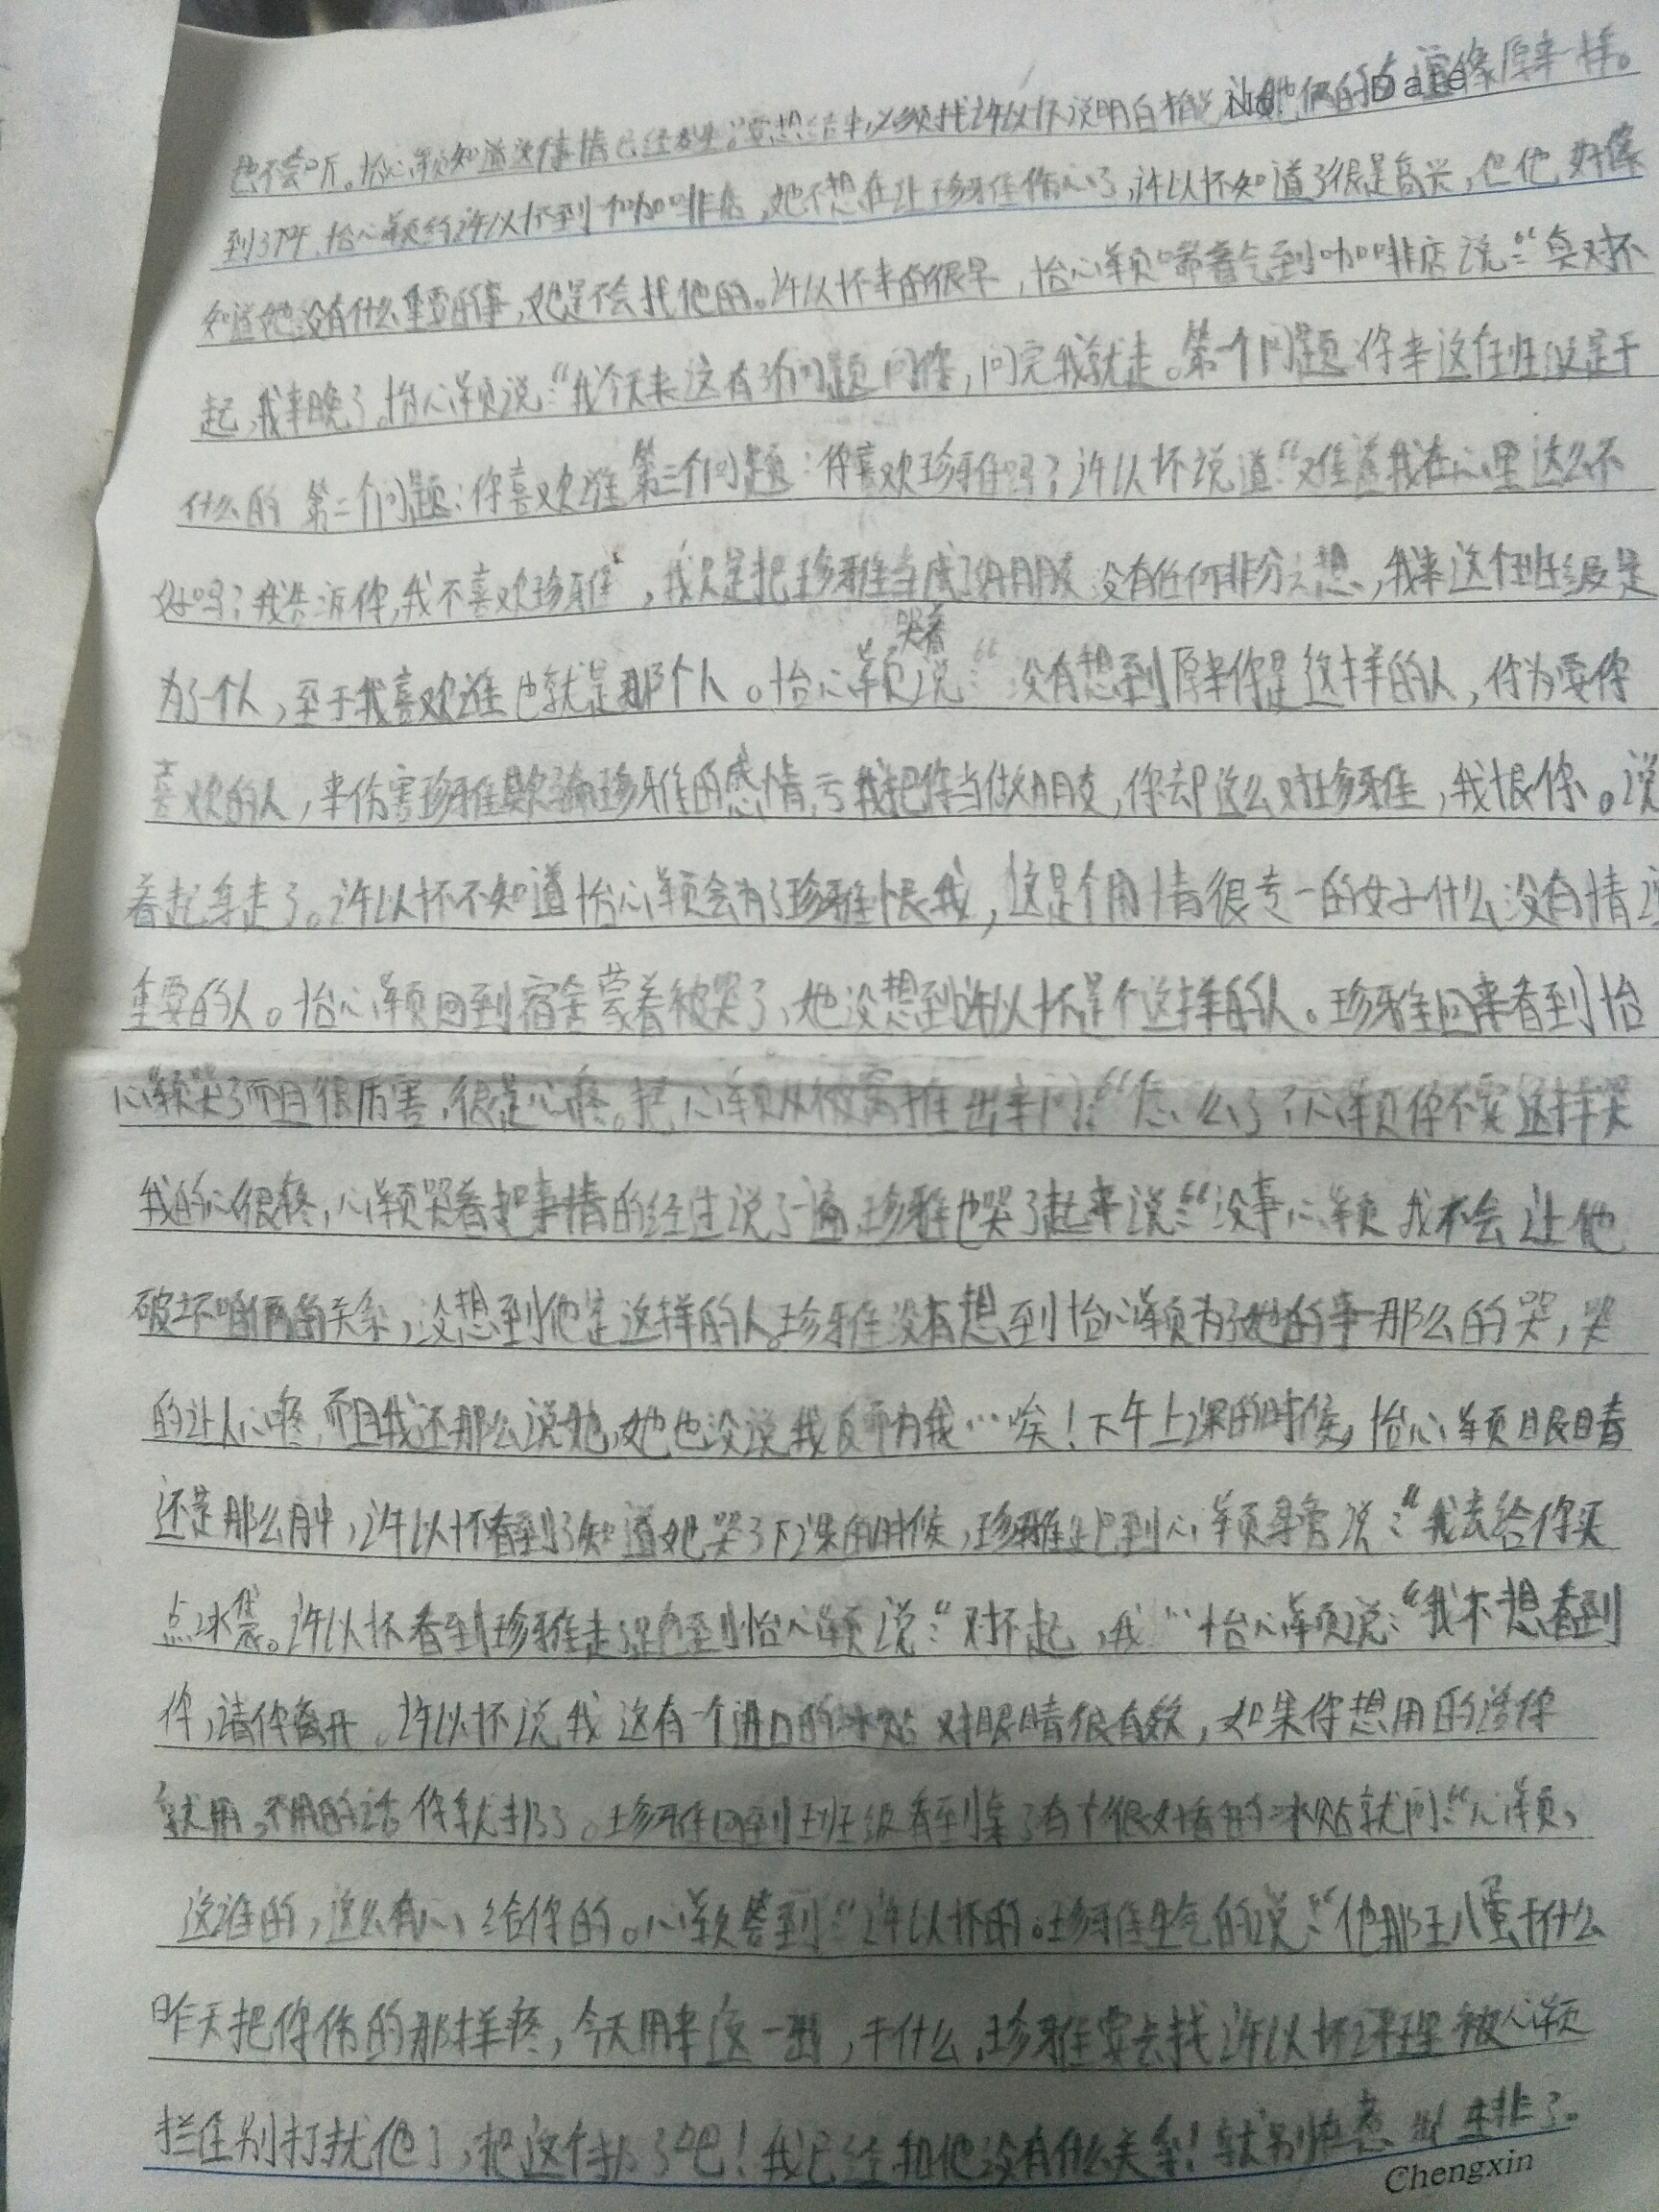 No. Date
也不会听。怡心颖知道这件事情已经发生了要想结束,必须找许以怀说明白 让她俩的 像原来一样。
到了下午,怡心颖约许以怀到一加咖啡店,她不想在让珍雅伤心了,许以怀知道了很是高兴,但他好像
知道她没有什么重要的事,她是不会找他的。许以怀来的很早,怡心颖喘着气到咖啡店说:“真对不
起,我来晚了。怡心颖说:“我今天来这有3个问题问你,问完我就走。第一个问题:你来这个班级是干
什么的 第二个问题:你喜欢谁 第三个问题:你喜欢珍雅吗?许以怀说道:“难道我在心里这么不
好吗?我告诉你,我不喜欢珍雅,我只是把珍雅当成了好朋友没有任何非分之想,我来这个班级是
为了一个人,至于我喜欢谁也就是那个人。怡心颖哭着说:“没有想到原来你是这样的人,你为要你
喜欢的人,来伤害珍雅欺骗珍雅的感情,亏我把你当做好朋友,你却这么对珍雅,我恨你。说
着起身走了。许以怀不知道怡心颖会为了珍雅恨我,这是个用情很专一的女子什么没有情
重要的人。怡心颖回到宿舍蒙着被哭了,她没想到许以怀是个这样的人。珍雅回来看到怡
心颖哭了而且很厉害,很是心疼。把心颖从被窝推出来问:“怎么了?心颖你不要这样哭
我的心很疼,心颖哭着把事情的经过说了一遍,珍雅也哭了起来说:“没事心颖 我不会让他
破坏咱俩的关系,没想到他是这样的人。珍雅没有想到怡心颖为了她的事那么的哭,哭
的让人心疼,而且我还那么说她,她也没说我反而为我…唉!下午上课的时候,怡心颖眼睛
还是那么肿,许以怀看到了知道她哭了下课的时候,珍雅跑到心颖身旁说:“我去给你买
点冰袋。许以怀看到珍雅走了跑到怡心颖说:“对不起,我…怡心颖说:“我不想看到
你,请你离开。许以怀说我这有一个进口的冰贴对眼睛很有效,如果你想用的话你
就用,不用的话你就扔了。珍雅回到班级看到桌子有个很好看的冰贴就问:“心颖,
这谁的,这么有心给你的。心颖答到:“许以怀的。珍雅生气的说:“他那王八蛋干什么
昨天把你伤的那样疼,今天用来这一出,干什么,珍雅要去找许以怀评理被心颖
拦住别打扰他了,把这个扔了吧!我已经和他没有什么关系!就别惹出生非了。
Chengxin